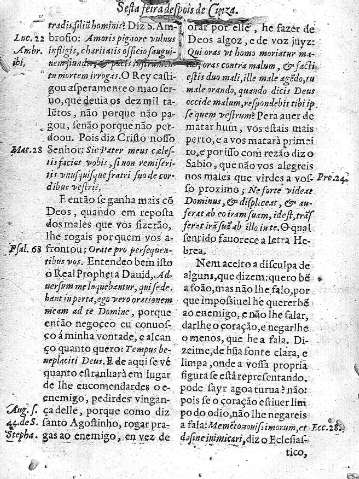 Sesta feira despois de Cinza.
tradis filiũ hominis? Diz S. Am-
Luc. 22
brosio: Amoris pignore vulnus
Ambr.
infligis, charitatis officio sangui-
ibi,
mortem irrogas. O Rey casti-
gou asperamente o mao ser-
uo, que deuia os dez mil ta-
letos, não porque não pa-
gou, senão porque não per-
doou. Pois diz Cristo nosso
Mat. 28
Senhor: Sic Pater meus cæles-
tis faciet vobis, si non remiseri-
tis vnusquisque fratri suo de cor-
dibus vestris.
E então se ganha mais cõ
Deos, quando em reposta
dos males que vos fizerão,
lhe rogais porquem vos a-
Psal. 68
frontou: Orate pro persequen-
tibus vos. Entendeo bem isto
o Real Propheta Dauid, Ad-
uersum me loquebantur, qui sede-
bant in porta, ego vero orationem
meam ad te Domine, porque
então negoceo eu cõ uos-
co à minha vontade, e alcan-
ço quanto quero: Tempus be-
neplaciti Deus. E de aqui se vê
quanto estranharà em lugar
de lhe encomendardes o e-
nemigo, pedirdes vingan-
Aug. s.
ça delle, porque como diz
de S.
santo Agostinho, rogar pra-
Stepha.
gas ao enemigo, em vez de
orar por elle, he fazer de
Deos algoz, e de voz juyz:
Qui oras vt homo moriatur ma-
lus, oras contra malum, & facti
estis duo mali, ille male agẽdo, tu
male orando, quando dicis Deus
occide malum, respondebit tibi ip-
se quem vestrum? Pera auer de
matar hum, vos estais mais
perto, e a vos matarà primei-
ro, e por isso com rezão diz o
Sabio, que não vos alegreis
nos males que virdes a vos-
so proximo; Ne forte videat
Pro. 24.
Dominus, & displiceat, & au-
ferat ab eo iram suam, idest, trãs
ferat irã suã ab illo in te. O qual
sentido fauorece a letra He-
brea.
Nem aceito a disculpa de
alguns, que dizem: quero bẽ
a foão, mas não lhe falo, por
que impossiuel he quererbẽ
ao enemigo, e não lhe falar,
darlhe o coração, e negarlhe
o menos, que he a fala. Di-
zeime, de hũa fonte clara, e
limpa, onde a vossa propria
figura se està representando,
pode sayr agoa turua? não:
pois se o coração estiuer lim
po do odio, não lhe negareis
a fala: Memẽto nouissimorum, et
Ecc. 28.
desine inimicari, diz o Eclesias-
tico,